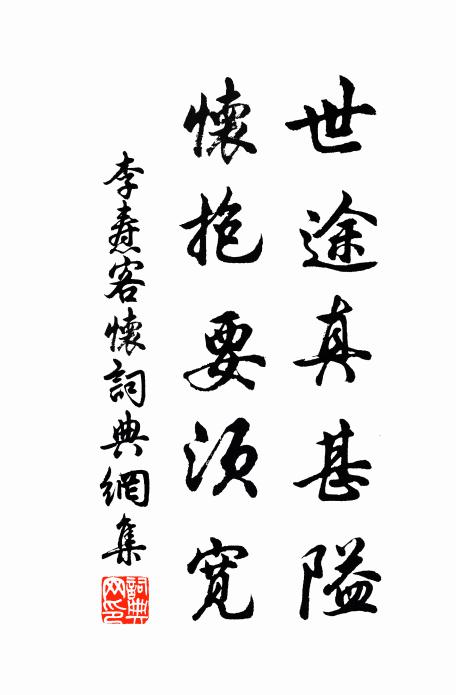 世途真甚隘
懷抱要須寬
李燾客懷詞典網集
詞典网印